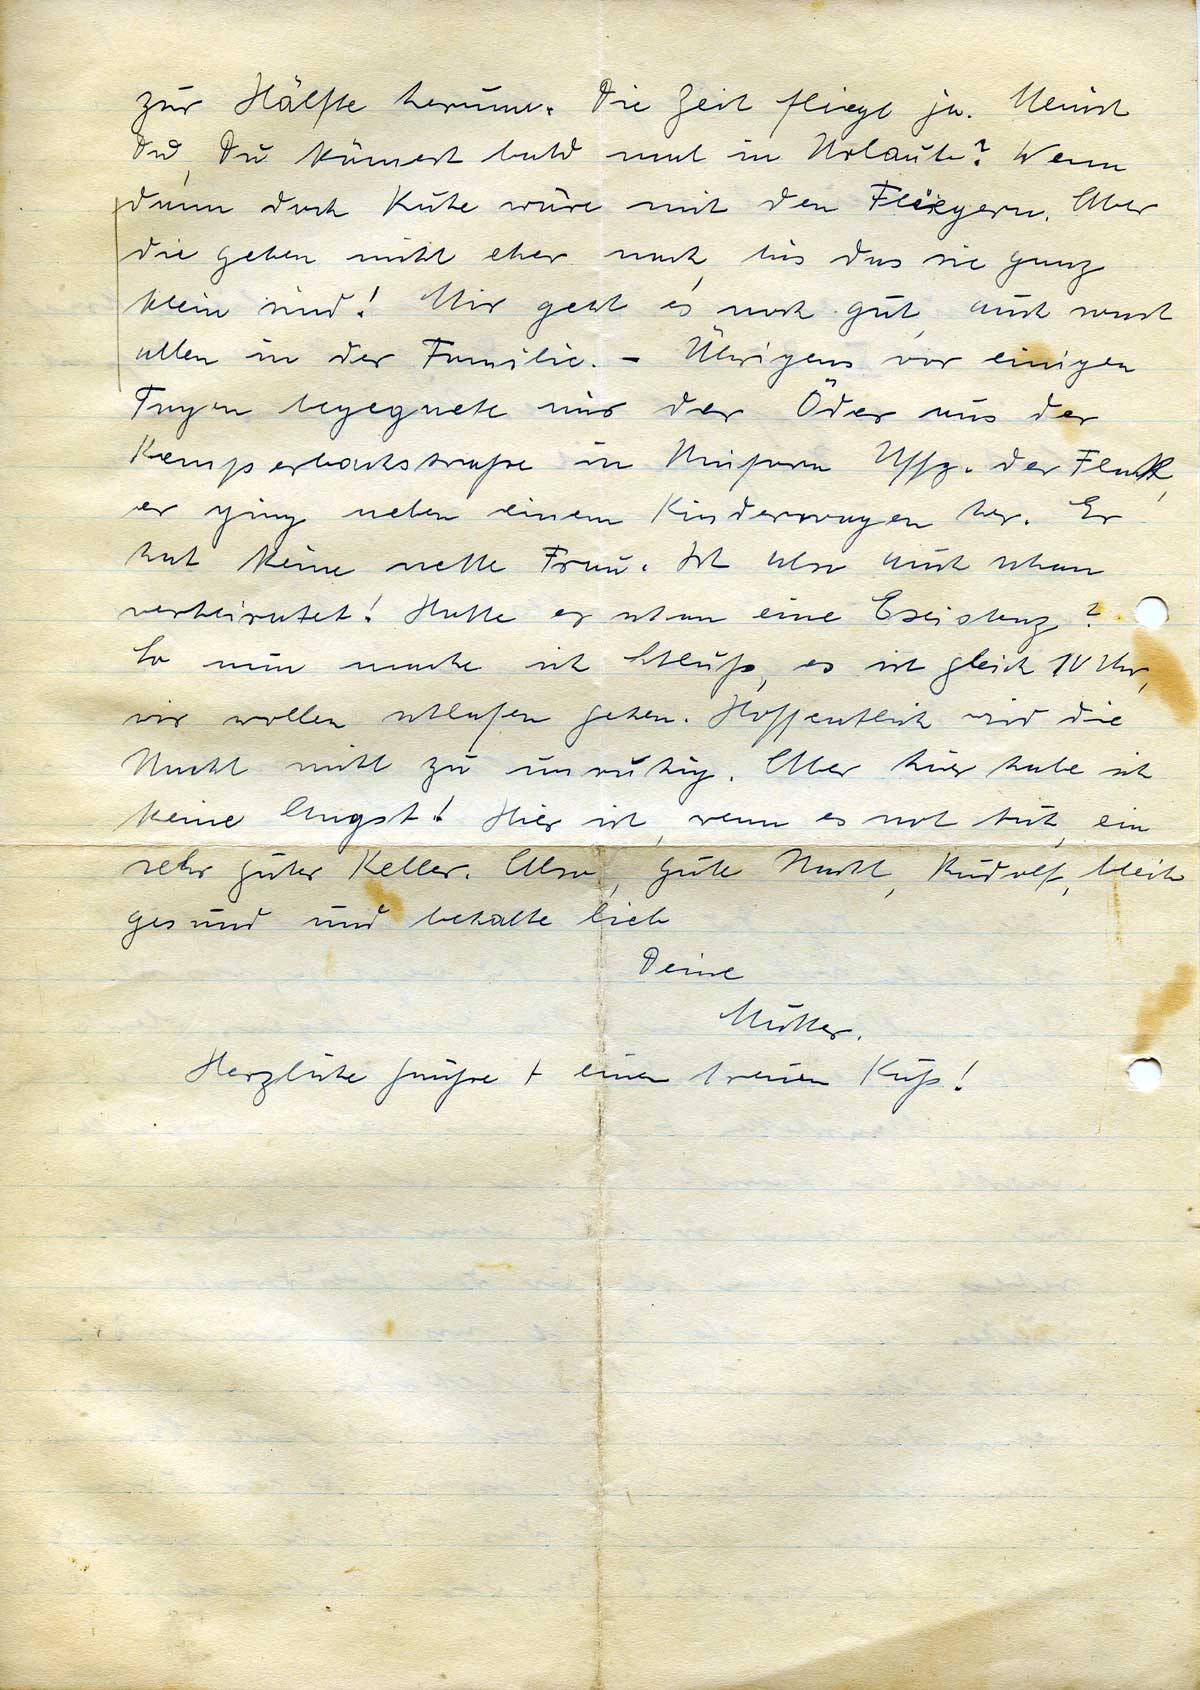 zur Hälfte herum. Die Zeit fliegt ja. Meinst
Du, Du kämest bald mal in Urlaub? Wenn
dann doch Ruhe wäre mit den Fliegern. Aber
die geben nicht eher nach, bis das sie ganz
klein sind! Mir geht es noch gut, auch sonst
allen in der Familie. – Übrigens vor einigen
Tagen begegnete mir der Öder aus der
Kemperbachstraße in Uniform Uffz. der Flak,
er ging neben einem Kinderwagen her. Er
hat keine nette Frau. Ist also auch schon
verheiratet! Hatte er schon eine Existenz?
So nun mache ich Schluß, es ist gleich 10 Uhr,
wir wollen schlafen gehen. Hoffentlich wird die
Nacht nicht zu unruhig. Aber hier habe ich
keine Angst! Hier ist, wenn es not tut, ein
sehr guter Keller. Also, gute Nacht, Rudolf, bleib
gesund und behalte lieb
Deine
Mutter.
Herzliche Grüße + einen treuen Kuß!